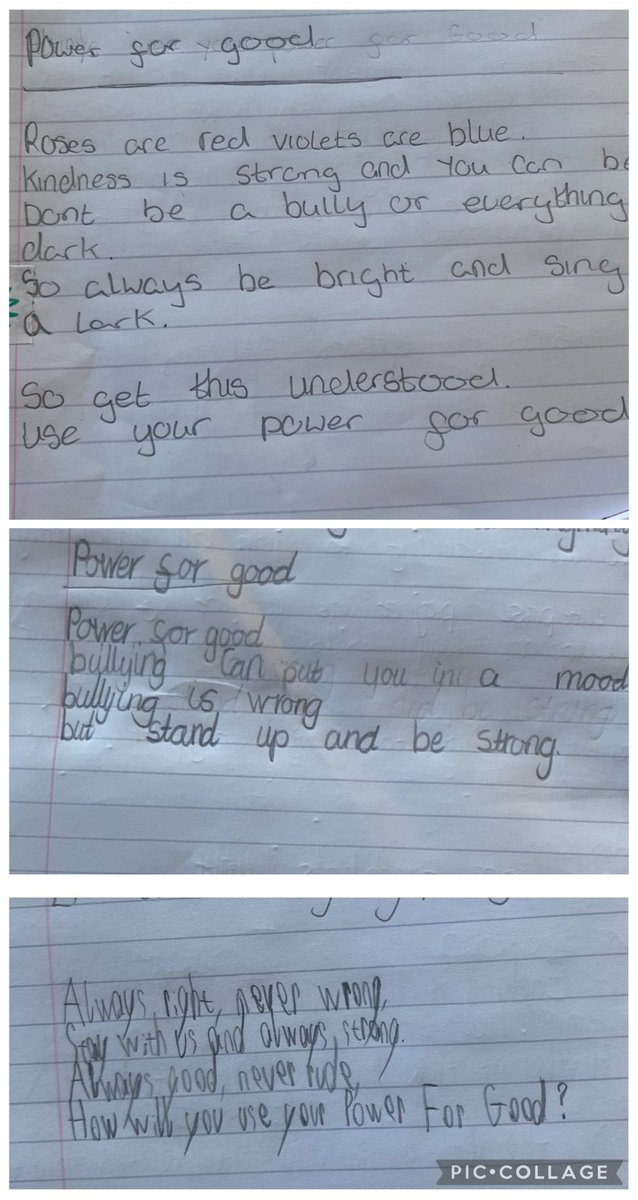 Power for good
Roses are red violets are blue.
Kindness is strong and you can be
Dont be a bully or everything
dark.
So always be bright and sing
a Lark.
So get this understood.
use your power for good
Power for good
Power for good
bullying Can put you in a mood
bullying is wrong
but stand up and be strong.
Always right, never wrong,
Stay with us and always, strong.
Always good, never rude,
How will you use your Power For Good?
PIC•COLLAGE